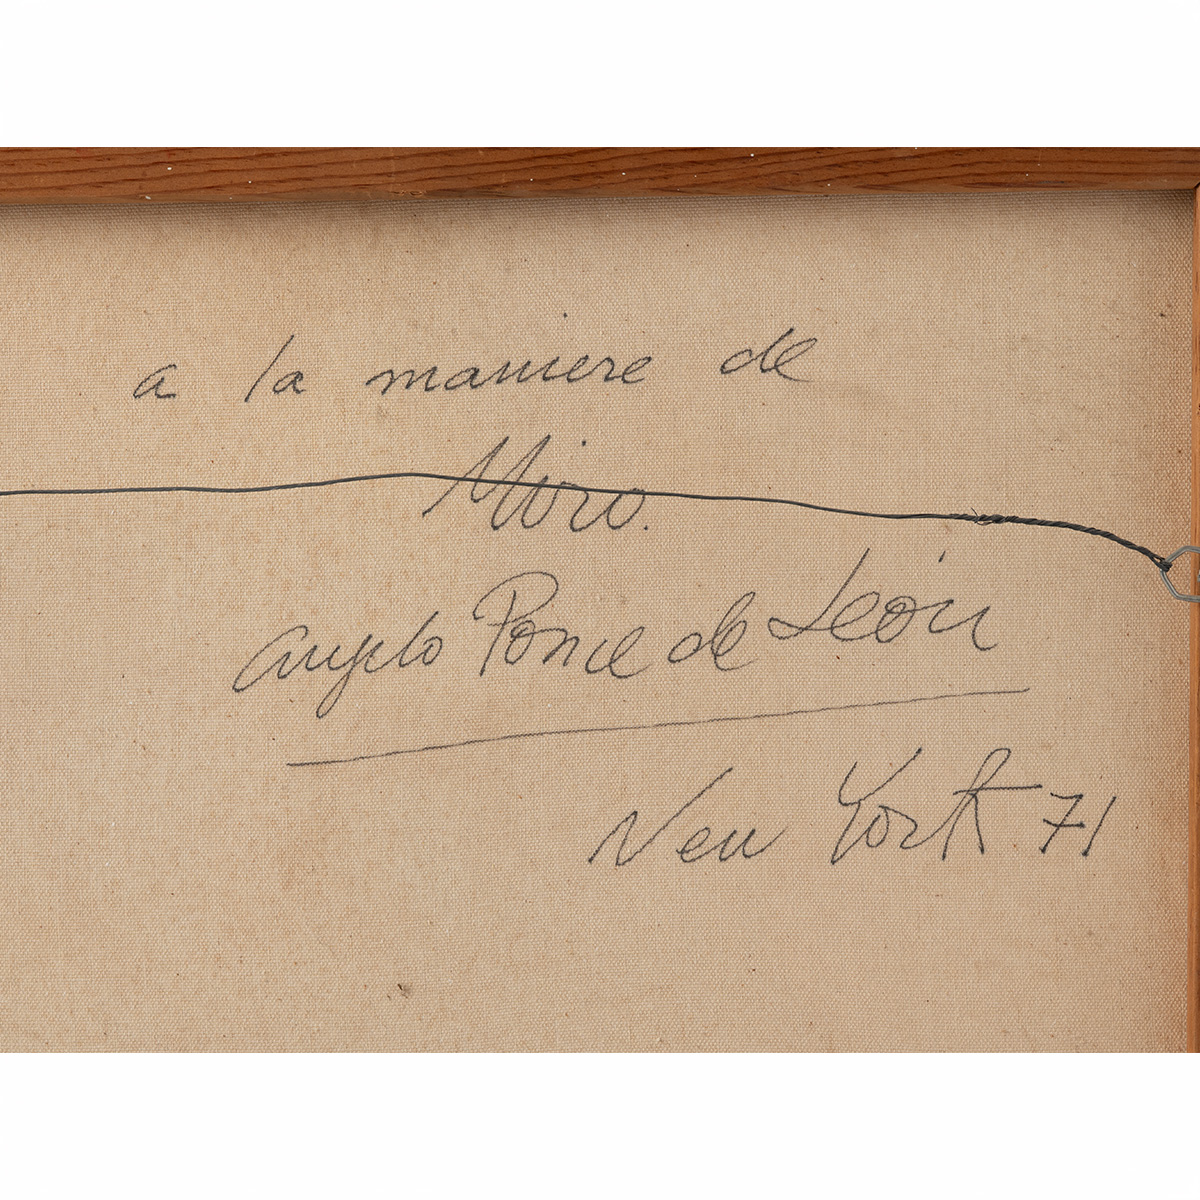 a la maniere de
Miro.
angelo Ponce de León
New York 71